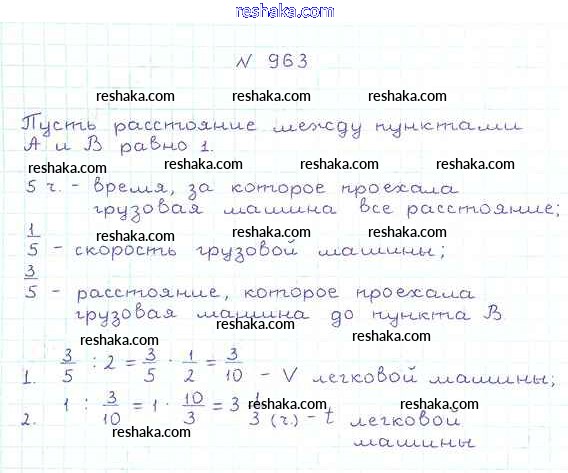 reshaka.com
N 963
reshaka.com reshaka.com
Пусть расстояние между пунктами
А и В равно 1.
reshaka.com reshaka.com reshaka.com
5 ч. - время, за которое проехала
грузовая машина все расстояние;
reshaka.com reshaka.com
1/5 - скорость грузовой машины;
reshaka.com reshaka.com
3/5 - расстояние, которое проехала
грузовая машина до пункта В
reshaka.com reshaka.com
1. 3/5 : 2 = 3/5 · 1/2 = 3/10 - V легковой машины;
reshaka.com reshaka.com
2. 1 : 3/10 = 1 · 10/3 = 3 1/3 (ч.) - t легковой
машины
reshaka.com reshaka.com